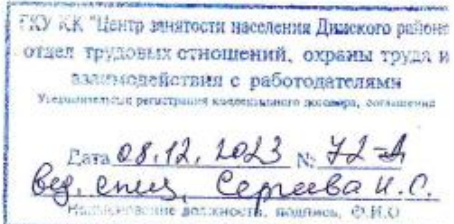 ГКУ КК "Центр занятости населения Динского района
отдел трудовых отношений, охраны труда и
взаимодействия с работодателями
Уведомительная регистрация коллективного договора, соглашения
Дата 08.12.2023 № 72-Д
Вед. спец. Сергеева И.С.
Наименование должности, подпись, Ф.И.О